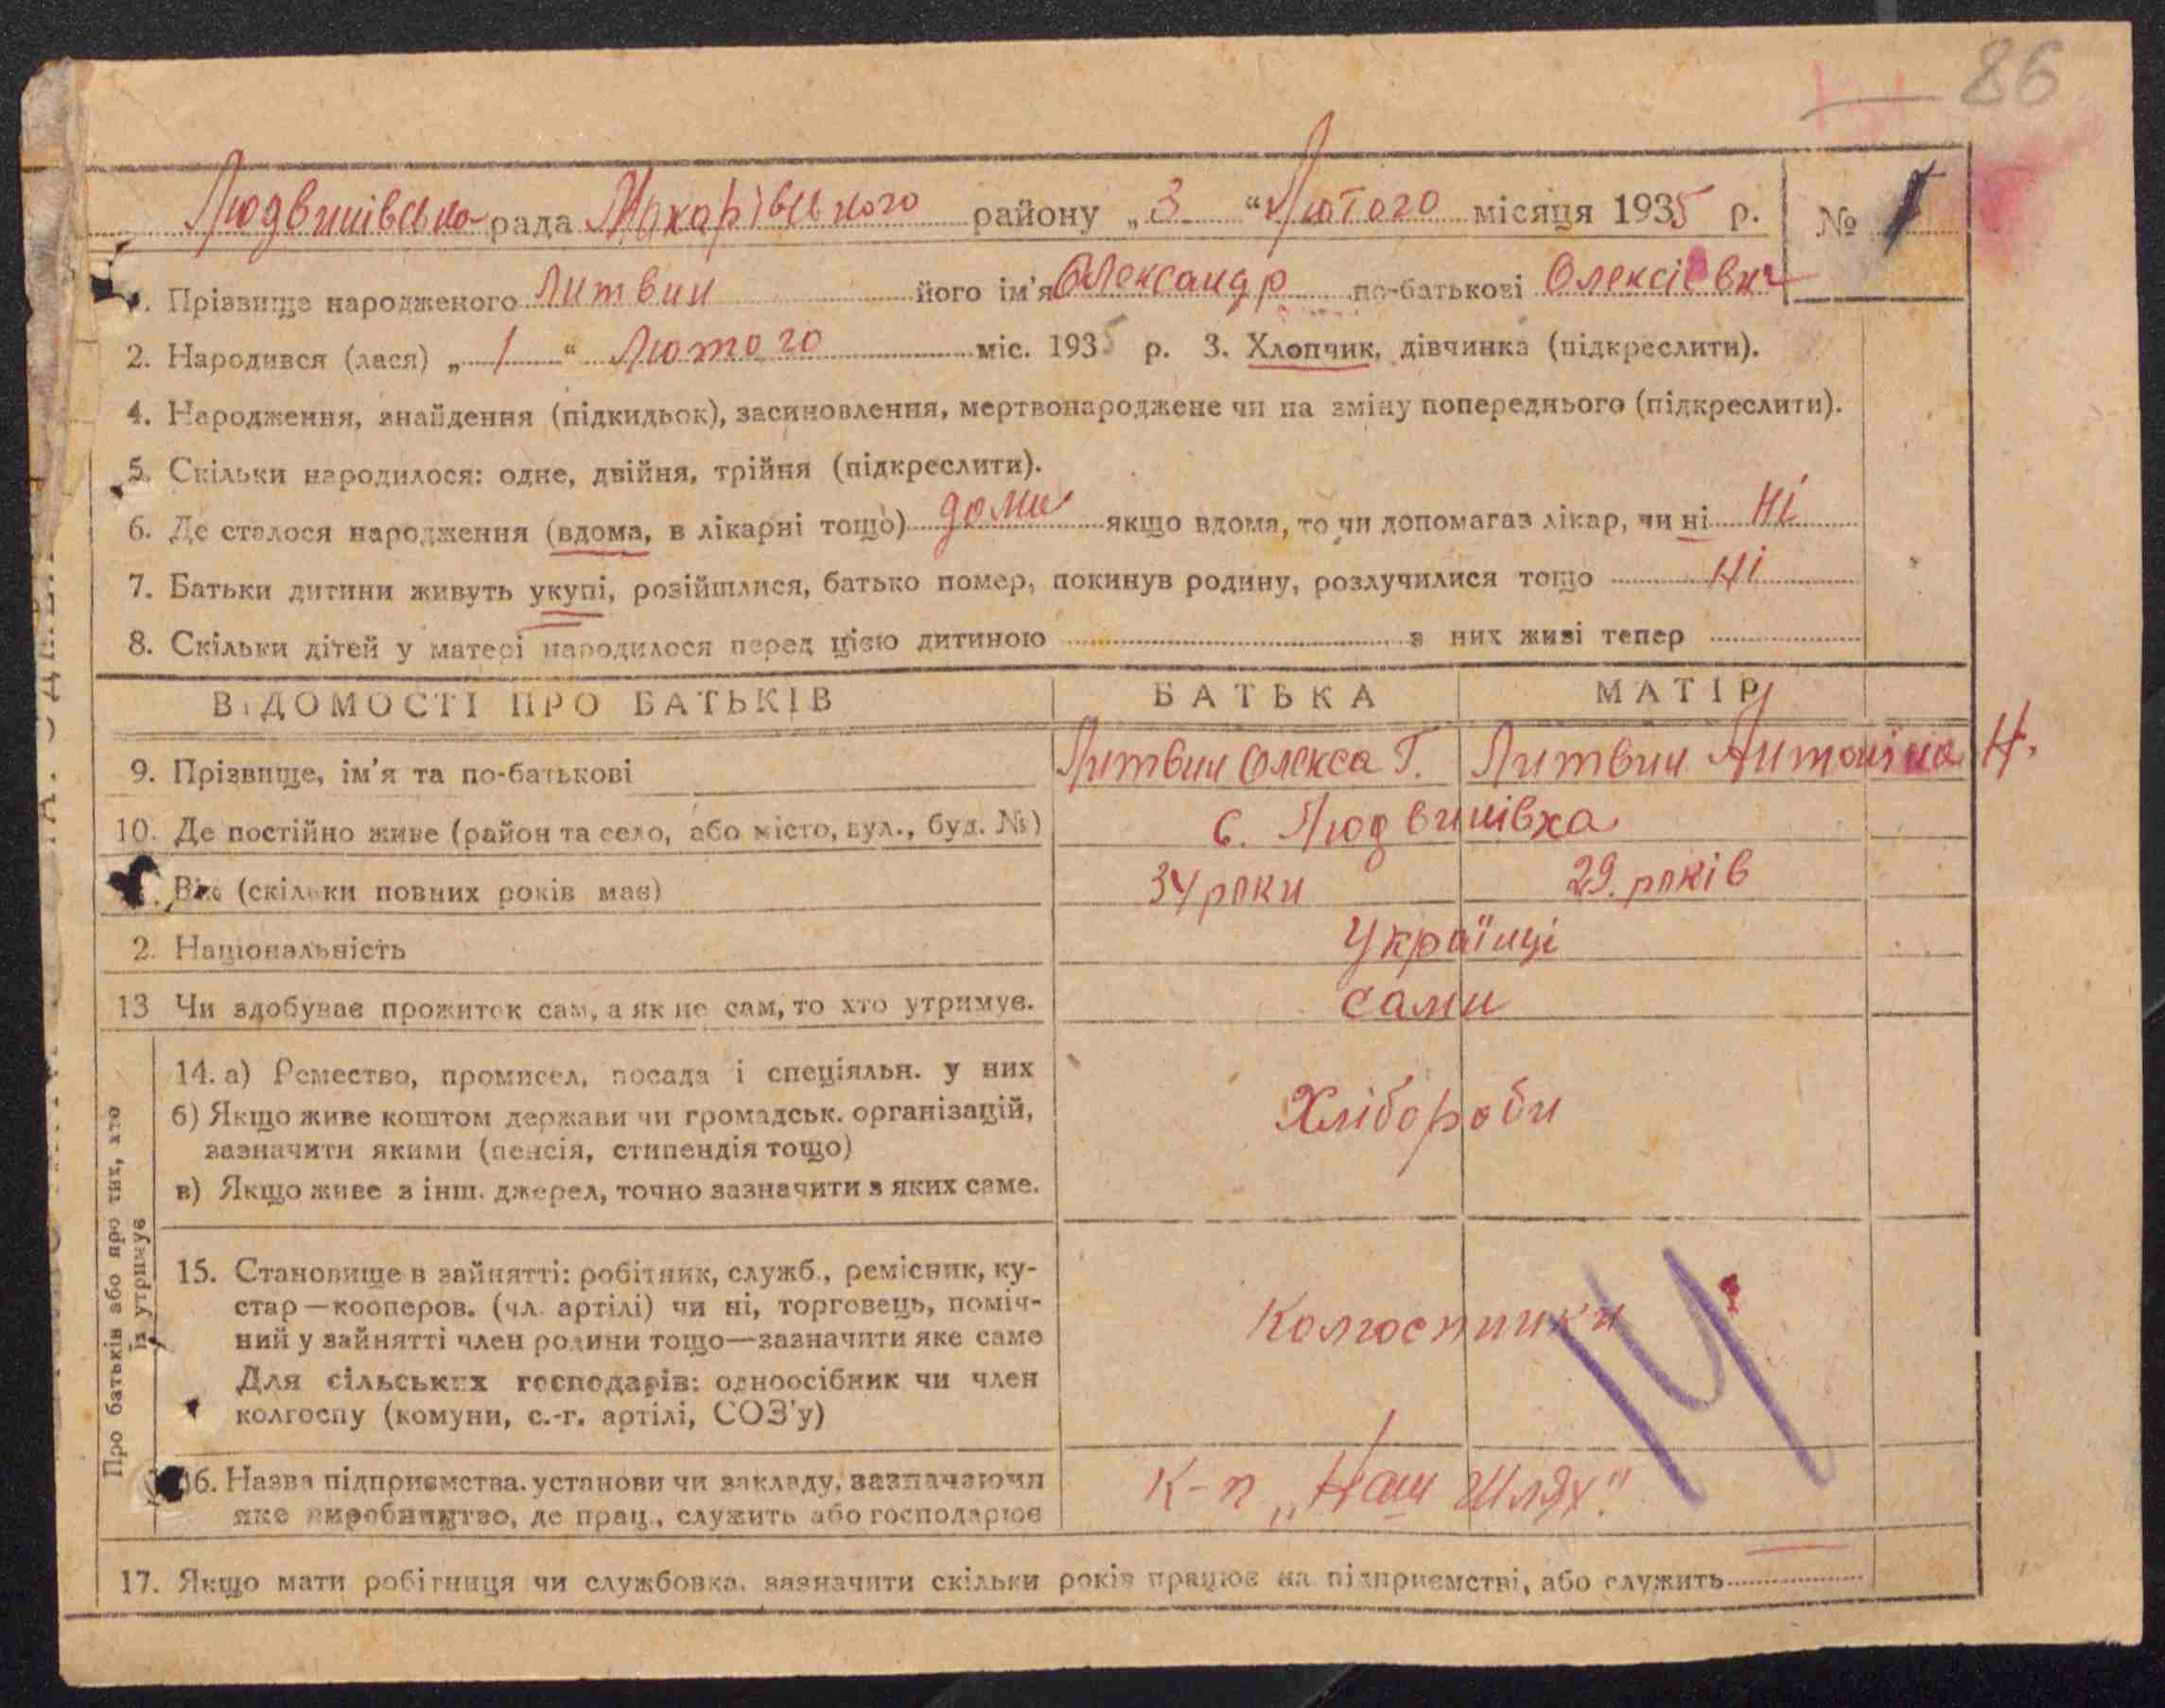 86
Людвинівсько рада Макарівського району „3“ Лютого місяця 1935 р. №
1. Прізвище народженого Литвин його ім'я Олександр по-батькові Олексієвич
2. Народився (лася) „1“ Лютого міс. 1935 р. 3. Хлопчик, дівчинка (підкреслити).
4. Народження, знайдення (підкидьок), засиновлення, мертвонароджене чи на зміну попереднього (підкреслити).
5. Скільки народилося: одне, двійня, трійня (підкреслити).
6. Де сталося народження (вдома, в лікарні тощо) дома якщо вдома, то чи допомагав лікар, чи ні ні
7. Батьки дитини живуть укупі, розійшлися, батько помер, покинув родину, розлучилися тощо ні
8. Скільки дітей у матері народилося перед цією дитиною з них живі тепер
ВІДОМОСТІ ПРО БАТЬКІВ БАТЬКА МАТІР
9. Прізвище, ім'я та по-батькові Литвин Олекса Г. Литвин Антоніна Н.
10. Де постійно живе (район та село, або місто, вул., буд. №) с. Людвинівка
Вік (скільки повних років має) 34 роки 29. років
2. Національність Українці
13 Чи здобуває прожиток сам, а як не сам, то хто утримує. сами
Про батьків або про тих, хто їх утримує
14. а) Ремество, промисел, посада і спеціяльн. у них
б) Якщо живе коштом держави чи громадськ. організацій,
зазначити якими (пенсія, стипендія тощо) Хлібороби
в) Якщо живе з інш. джерел, точно зазначити з яких саме.
15. Становище в зайнятті: робітник, служб., ремісник, ку-
стар—кооперов. (чл. артілі) чи ні, торговець, поміч-
ний у зайнятті член родини тощо—зазначити яке саме Колгоспники
Для сільських господарів: одноосібник чи член
колгоспу (комуни, с.-г. артілі, СОЗ'у)
14
16. Назва підприємства, установи чи закладу, зазначаючи К-п „Наш Шлях“
яке виробництво, де прац., служить або господарює
17. Якщо мати робітниця чи службовка, зазначити скільки років працює на підприємстві, або служить